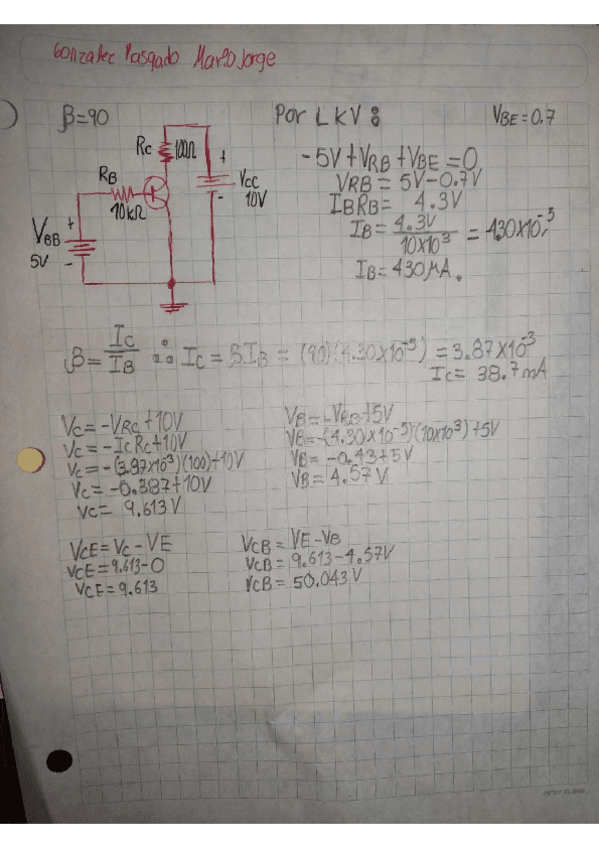 Gonzalez Pasgado Mario Jorge
β=90
Por LKV:
VBE=0.7
RC 100Ω
+
VCC
10V
-
RB
10kΩ
VBB
+
5V
-
-5V+VRB+VBE=0
VRB = 5V-0.7V
IBRB= 4.3V
IB= 4.3V/10x10³ = 430x10⁻³
IB= 430μA.
β= IC/IB ∴ IC=βIB = (90)(4.30x10⁻⁵) = 3.87x10⁻³
IC= 38.7mA
VC=-VRC+10V
VC=-ICRC+10V
VC=-(3.87x10⁻³)(100)+10V
VC=-0.387+10V
VC= 9.613V
VB=-VRB+5V
VB=-(4.30x10⁻⁵)(10x10³)+5V
VB= -0.43+5V
VB= 4.57V
VCE=VC-VE
VCE=9.613-0
VCE=9.613
VCB=VE-VB
VCB= 9.613-4.57V
VCB= 50.043V